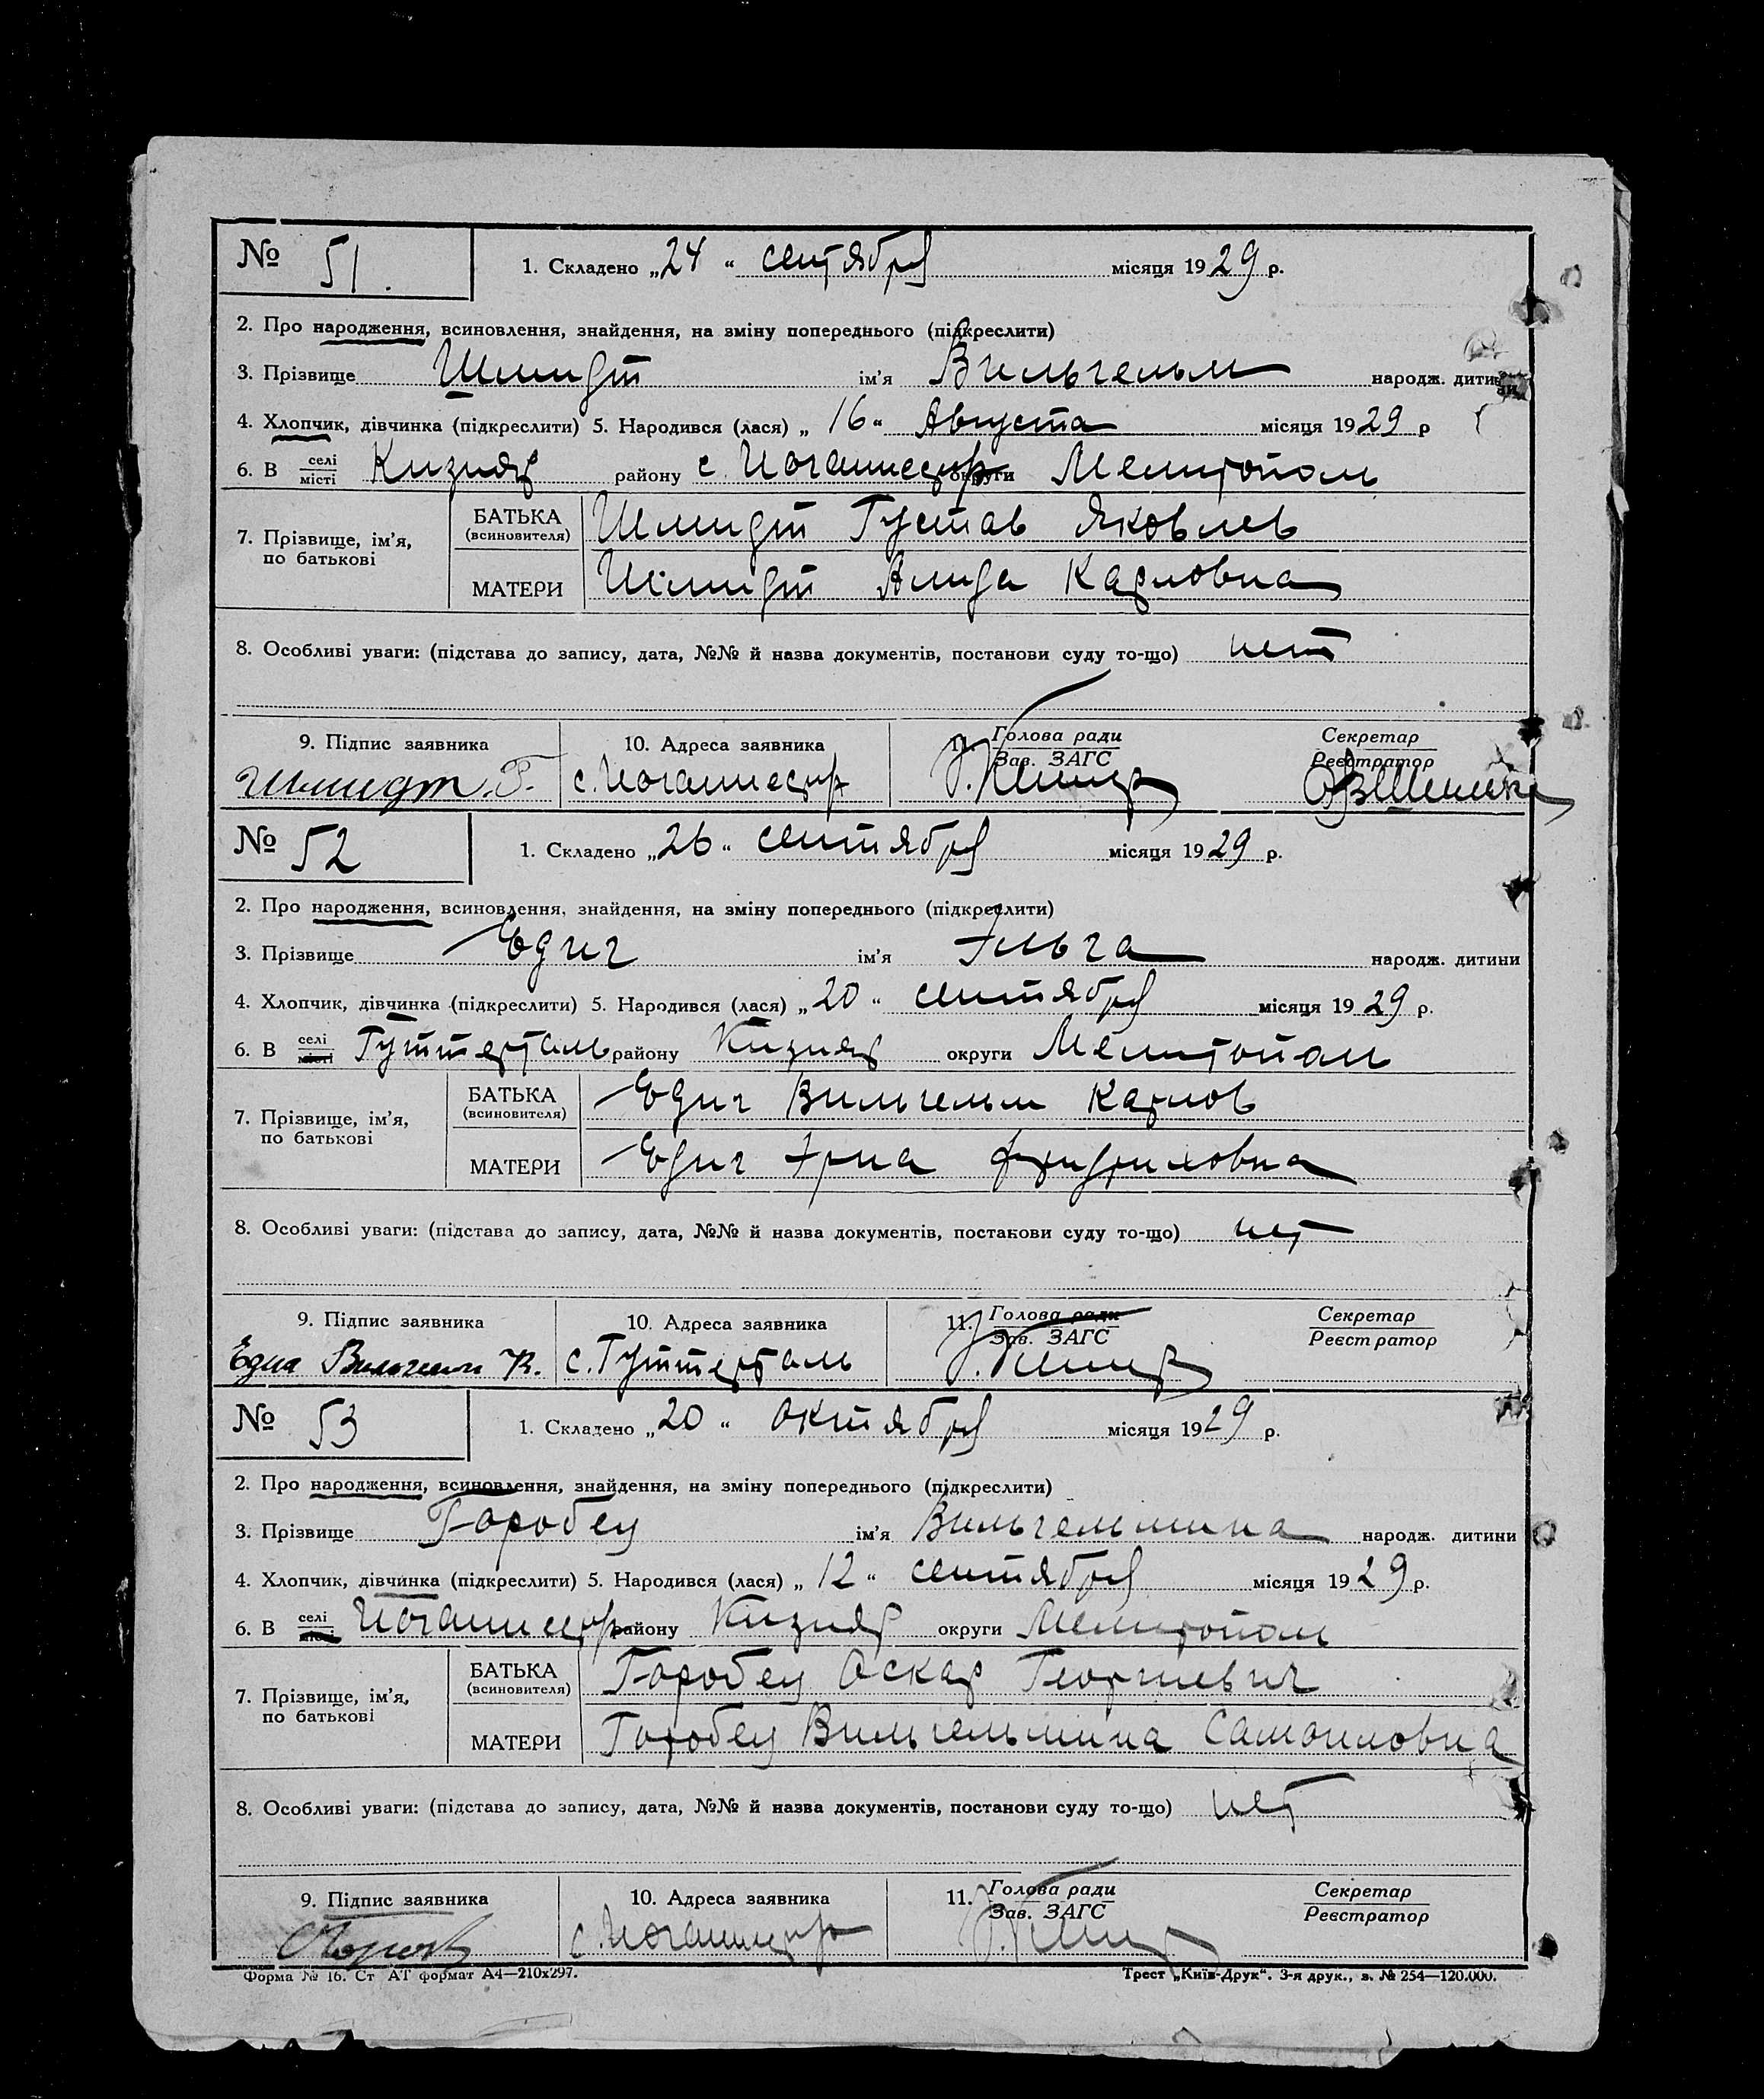 № 51. 1. Складено „24“ сентября місяця 1929 р.
2. Про народження, всиновлення, знайдення, на зміну попереднього (підкреслити)
3. Прізвище Шмидт ім'я Вильгельм народж. дитини
4. Хлопчик, дівчинка (підкреслити) 5. Народився (лася) „16“ Августа місяця 1929 р
6. В селі місті Кизияр району с. Иоганнесру округи Мелитополь
7. Прізвище, ім'я, по батькові БАТЬКА (всиновителя) Шмидт Густав Яковлев
МАТЕРИ Шмидт Алида Карловна
8. Особливі уваги: (підстава до запису, дата, №№ й назва документів, постанови суду то-що) нет
9. Підпис заявника 10. Адреса заявника 11. Голова ради Зав. ЗАГС Секретар Реєстратор
Шмидт. Г. с. Иоганнесру
№ 52 1. Складено „26“ сентября місяця 1929 р.
2. Про народження, всиновлення, знайдення, на зміну попереднього (підкреслити)
3. Прізвище Едиг ім'я Эльга народж. дитини
4. Хлопчик, дівчинка (підкреслити) 5. Народився (лася) „20“ сентября місяця 1929 р.
6. В селі місті Гуттерталь району Кизияр округи Мелитополь
7. Прізвище, ім'я, по батькові БАТЬКА (всиновителя) Едиг Вильгельм Карлов
МАТЕРИ Едиг Эрна Фридриховна
8. Особливі уваги: (підстава до запису, дата, №№ й назва документів, постанови суду то-що) нет
9. Підпис заявника 10. Адреса заявника 11. Голова ради Зав. ЗАГС Секретар Реєстратор
Едиг Вильгельм К. с. Гуттерталь
№ 53 1. Складено „20“ октября місяця 1929 р.
2. Про народження, всиновлення, знайдення, на зміну попереднього (підкреслити)
3. Прізвище Горобец ім'я Вильгельмина народж. дитини
4. Хлопчик, дівчинка (підкреслити) 5. Народився (лася) „12“ сентября місяця 1929 р.
6. В селі місті Иоганнесру району Кизияр округи Мелитополь
7. Прізвище, ім'я, по батькові БАТЬКА (всиновителя) Горобец Оскар Георгиевич
МАТЕРИ Горобец Вильгельмина Самоиловна
8. Особливі уваги: (підстава до запису, дата, №№ й назва документів, постанови суду то-що) нет
9. Підпис заявника 10. Адреса заявника 11. Голова ради Зав. ЗАГС Секретар Реєстратор
с. Иоганнесру
Форма № 16. Ст АТ формат А4—210х297. Трест „Київ-Друк“. 3-я друк., з. № 254—120.000.